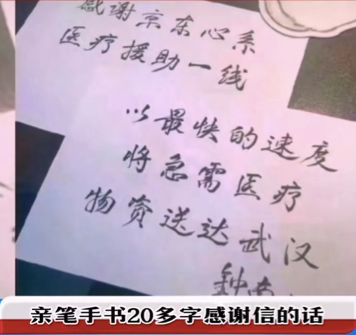 感谢京东心系
医疗援助一线
以最快的速度
将急需医疗
物资送达武汉
钟南
亲笔手书20多字感谢信的话